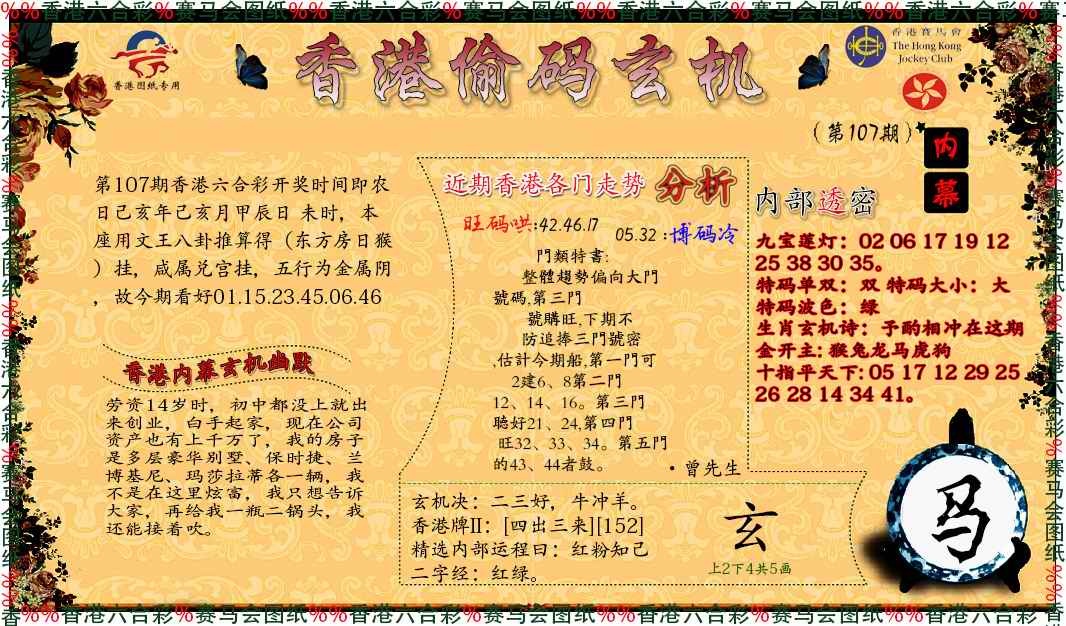 %%香港六合彩%赛马会图纸%%香港六合彩%赛马会图纸%%香港六合彩%赛马会图纸%%香港六合彩%赛马
香港图纸专用
香港偷码玄机
香港賽馬會
The Hong Kong
Jockey Club
(第107期)
内幕
第107期香港六合彩开奖时间即农
日己亥年己亥月甲辰日 未时，本
座用文王八卦推算得（东方房日猴
）挂，咸属兑宫挂，五行为金属阴
，故今期看好01.15.23.45.06.46
香港内幕玄机幽默
劳资14岁时，初中都没上就出
来创业，白手起家，现在公司
资产也有上千万了，我的房子
是多层豪华别墅、保时捷、兰
博基尼、玛莎拉蒂各一辆，我
不是在这里炫富，我只想告诉
大家，再给我一瓶二锅头，我
还能接着吹。
近期香港各门走势 分析
旺码哄:42.46.17
05.32 :博码冷
門類特書:
整體趨勢偏向大門
號碼,第三門
號購旺,下期不
防追捧三門號密
,估計今期船,第一門可
2建6、8第二門
12、14、16。第三門
聽好21、24,第四門
旺32、33、34。第五門
的43、44者鼓。
·曾先生
玄机决：二三好，牛冲羊。
香港牌II：[四出三来][152]
精选内部运程日：红粉知己
二字经：红绿。
玄
上2下4共5画
内部透密
九宝莲灯：02 06 17 19 12
25 38 30 35。
特码单双：双 特码大小：大
特码波色：绿
生肖玄机诗：予酌相冲在这期
金开主:猴兔龙马虎狗
十指平天下:05 17 12 29 25
26 28 14 34 41。
马
香%%香港六合彩%赛马会图纸%%香港六合彩%赛马会图纸%%香港六合彩%赛马会图纸%%香港六合彩